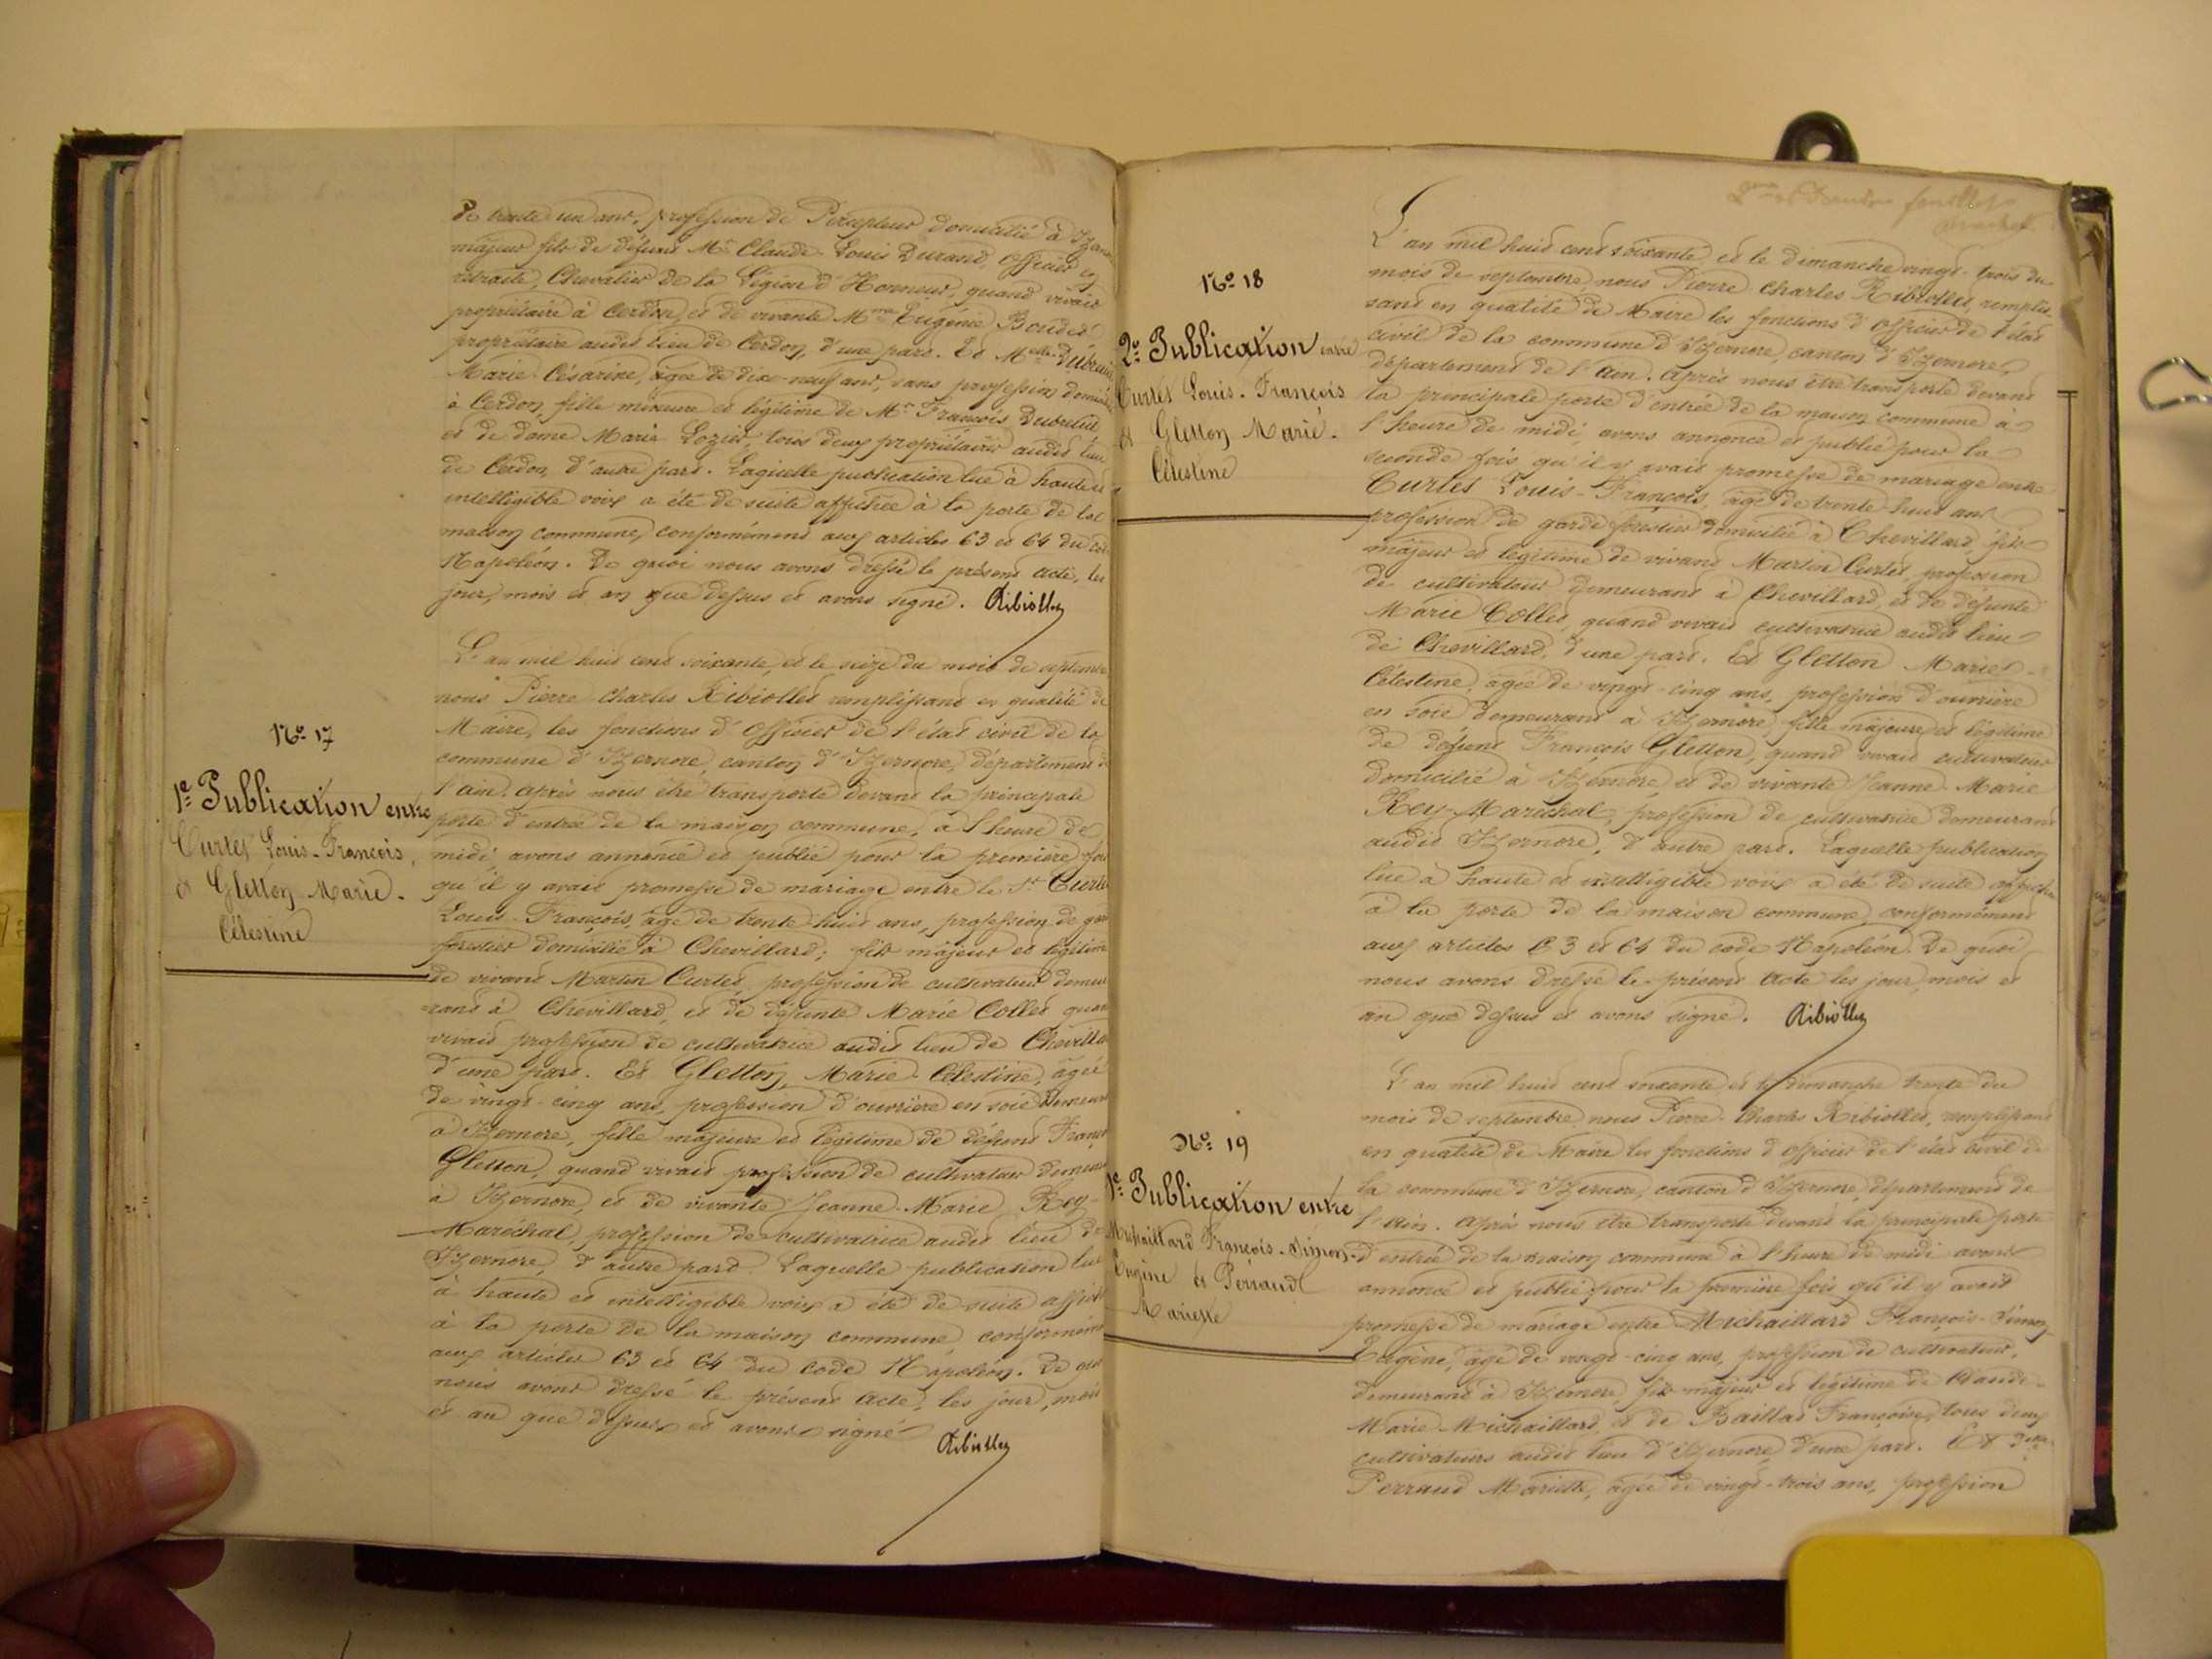 de trente un ans, profession de Percepteur domicilié à Izernore
majeur fils de défunt Mr Claude Louis Durand, officier en
retraite, Chevalier de la Légion d'Honneur, quand vivait
propriétaire à Cerdon, et de vivante Mme Eugénie Boudet
propriétaire audit lieu de Cerdon, d'une part. Et Melle Dubreuil
Marie Césarine, âgée de dix-neuf ans, sans profession domiciliée
à Cerdon, fille mineure et légitime de Mr François Dubreuil
et de dame Marie Lozier, tous deux propriétaires audit lieu
de Cerdon, d'autre part. Laquelle publication lue à haute et
intelligible voix a été de suite affichée à la porte de la
maison commune, conformément aux articles 63 et 64 du code
Napoléon. De quoi nous avons dressé le présent acte, les
jour, mois et an que dessus et avons signé. Ribiollet
No 17
1e Publication entre
Curtet Louis-François,
et Gletton Marie-
Célestine
L'an mil huit cent soixante, et le seize du mois de septembre
nous Pierre Charles Ribiollet remplissant en qualité de
Maire, les fonctions d'Officier de l'état civil de la
commune d'Izernore, canton d'Izernore, département de
l'ain. après nous être transporté devant la principale
porte d'entrée de la maison commune, à l'heure de
midi avons annoncé et publié pour la première fois
qu'il y avait promesse de mariage entre le Sr Curtet
Louis-François, âgé de trente-huit ans, profession de garde
forestier domicilié à Chevillard; fils majeur et légitime
de vivant Martin Curtet, profession de cultivateur demeu
-rant à Chevillard, et de défunte Marie Collet quand
vivait profession de cultivatrice audit lieu de Chevillard
d'une part. Et Gletton, Marie-Célestine, âgée
de vingt-cinq ans, profession d'ouvrière en soie demeurant
à Izernore, fille majeure et légitime de défunt François
Gletton, quand vivait profession de cultivateur demeurant
à Izernore, et de vivante Jeanne-Marie Rey-
Maréchal, profession de cultivatrice audit lieu de
Izernore, d'autre part. Laquelle publication lue
à haute et intelligible voix a été de suite affichée
à la porte de la maison commune, conformément
aux articles 63 et 64 du code Napoléon. De quoi
nous avons dressé le présent acte, les jour, mois
et an que dessus et avons signé
Ribiollet
2me et dernier feuillet
No 18
2e Publication entre
Curtet Louis-François
et Gletton Marie-
Célestine
L'an mil huit cent soixante, et le dimanche vingt-trois du
mois de septembre, nous Pierre Charles Ribiollet, remplis-
sant en qualité de Maire les fonctions d'Officier de l'état
civil de la commune d'Izernore, canton d'Izernore,
département de l'ain. Après nous être transporté devant
la principale porte d'entrée de la maison commune à
l'heure de midi, avons annoncé et publié pour la
seconde fois qu'il y avait promesse de mariage entre
Curtet Louis-François, âgé de trente-huit ans
profession de garde forestier domicilié à Chevillard, fils
majeur et légitime de vivant Martin Curtet, profession
de cultivateur demeurant à Chevillard, et de défunte
Marie Collet, quand vivait cultivatrice audit lieu
de Chevillard, d'une part. Et Gletton Marie-
Célestine, âgée de vingt-cinq ans, profession d'ouvrière
en soie demeurant à Izernore, fille majeure et légitime
de défunt François Gletton, quand vivait cultivateur
domicilié à Izernore, et de vivante Jeanne-Marie
Rey-Maréchal, profession de cultivatrice demeurant
audit Izernore, d'autre part. Laquelle publication
lue à haute et intelligible voix a été de suite affichée
à la porte de la maison commune, conformément
aux articles 63 et 64 du code Napoléon. De quoi
nous avons dressé le présent acte les jour, mois et
an que dessus et avons signé. Ribiollet
No 19
1e Publication entre
Michaillard François-Simon-
Eugène et Perraud
Mariette
L'an mil huit cent soixante et le dimanche trente du
mois de septembre, nous Pierre-Charles Ribiollet, remplissant
en qualité de Maire les fonctions d'officier de l'état civil de
la commune d'Izernore, canton d'Izernore, département de
l'ain. Après nous être transporté devant la principale porte
d'entrée de la maison commune à l'heure de midi avons
annoncé et publié pour la première fois qu'il y avait
promesse de mariage entre Michaillard François-Simon
Eugène, âgé de vingt-cinq ans, profession de cultivateur,
demeurant à Izernore, fils majeur et légitime de Claude-
Marie Michaillard, et de Baillat Françoise, tous deux
cultivateurs audit lieu d'Izernore, d'une part. Et Delle
Perraud Mariette, âgée de vingt-trois ans, profession